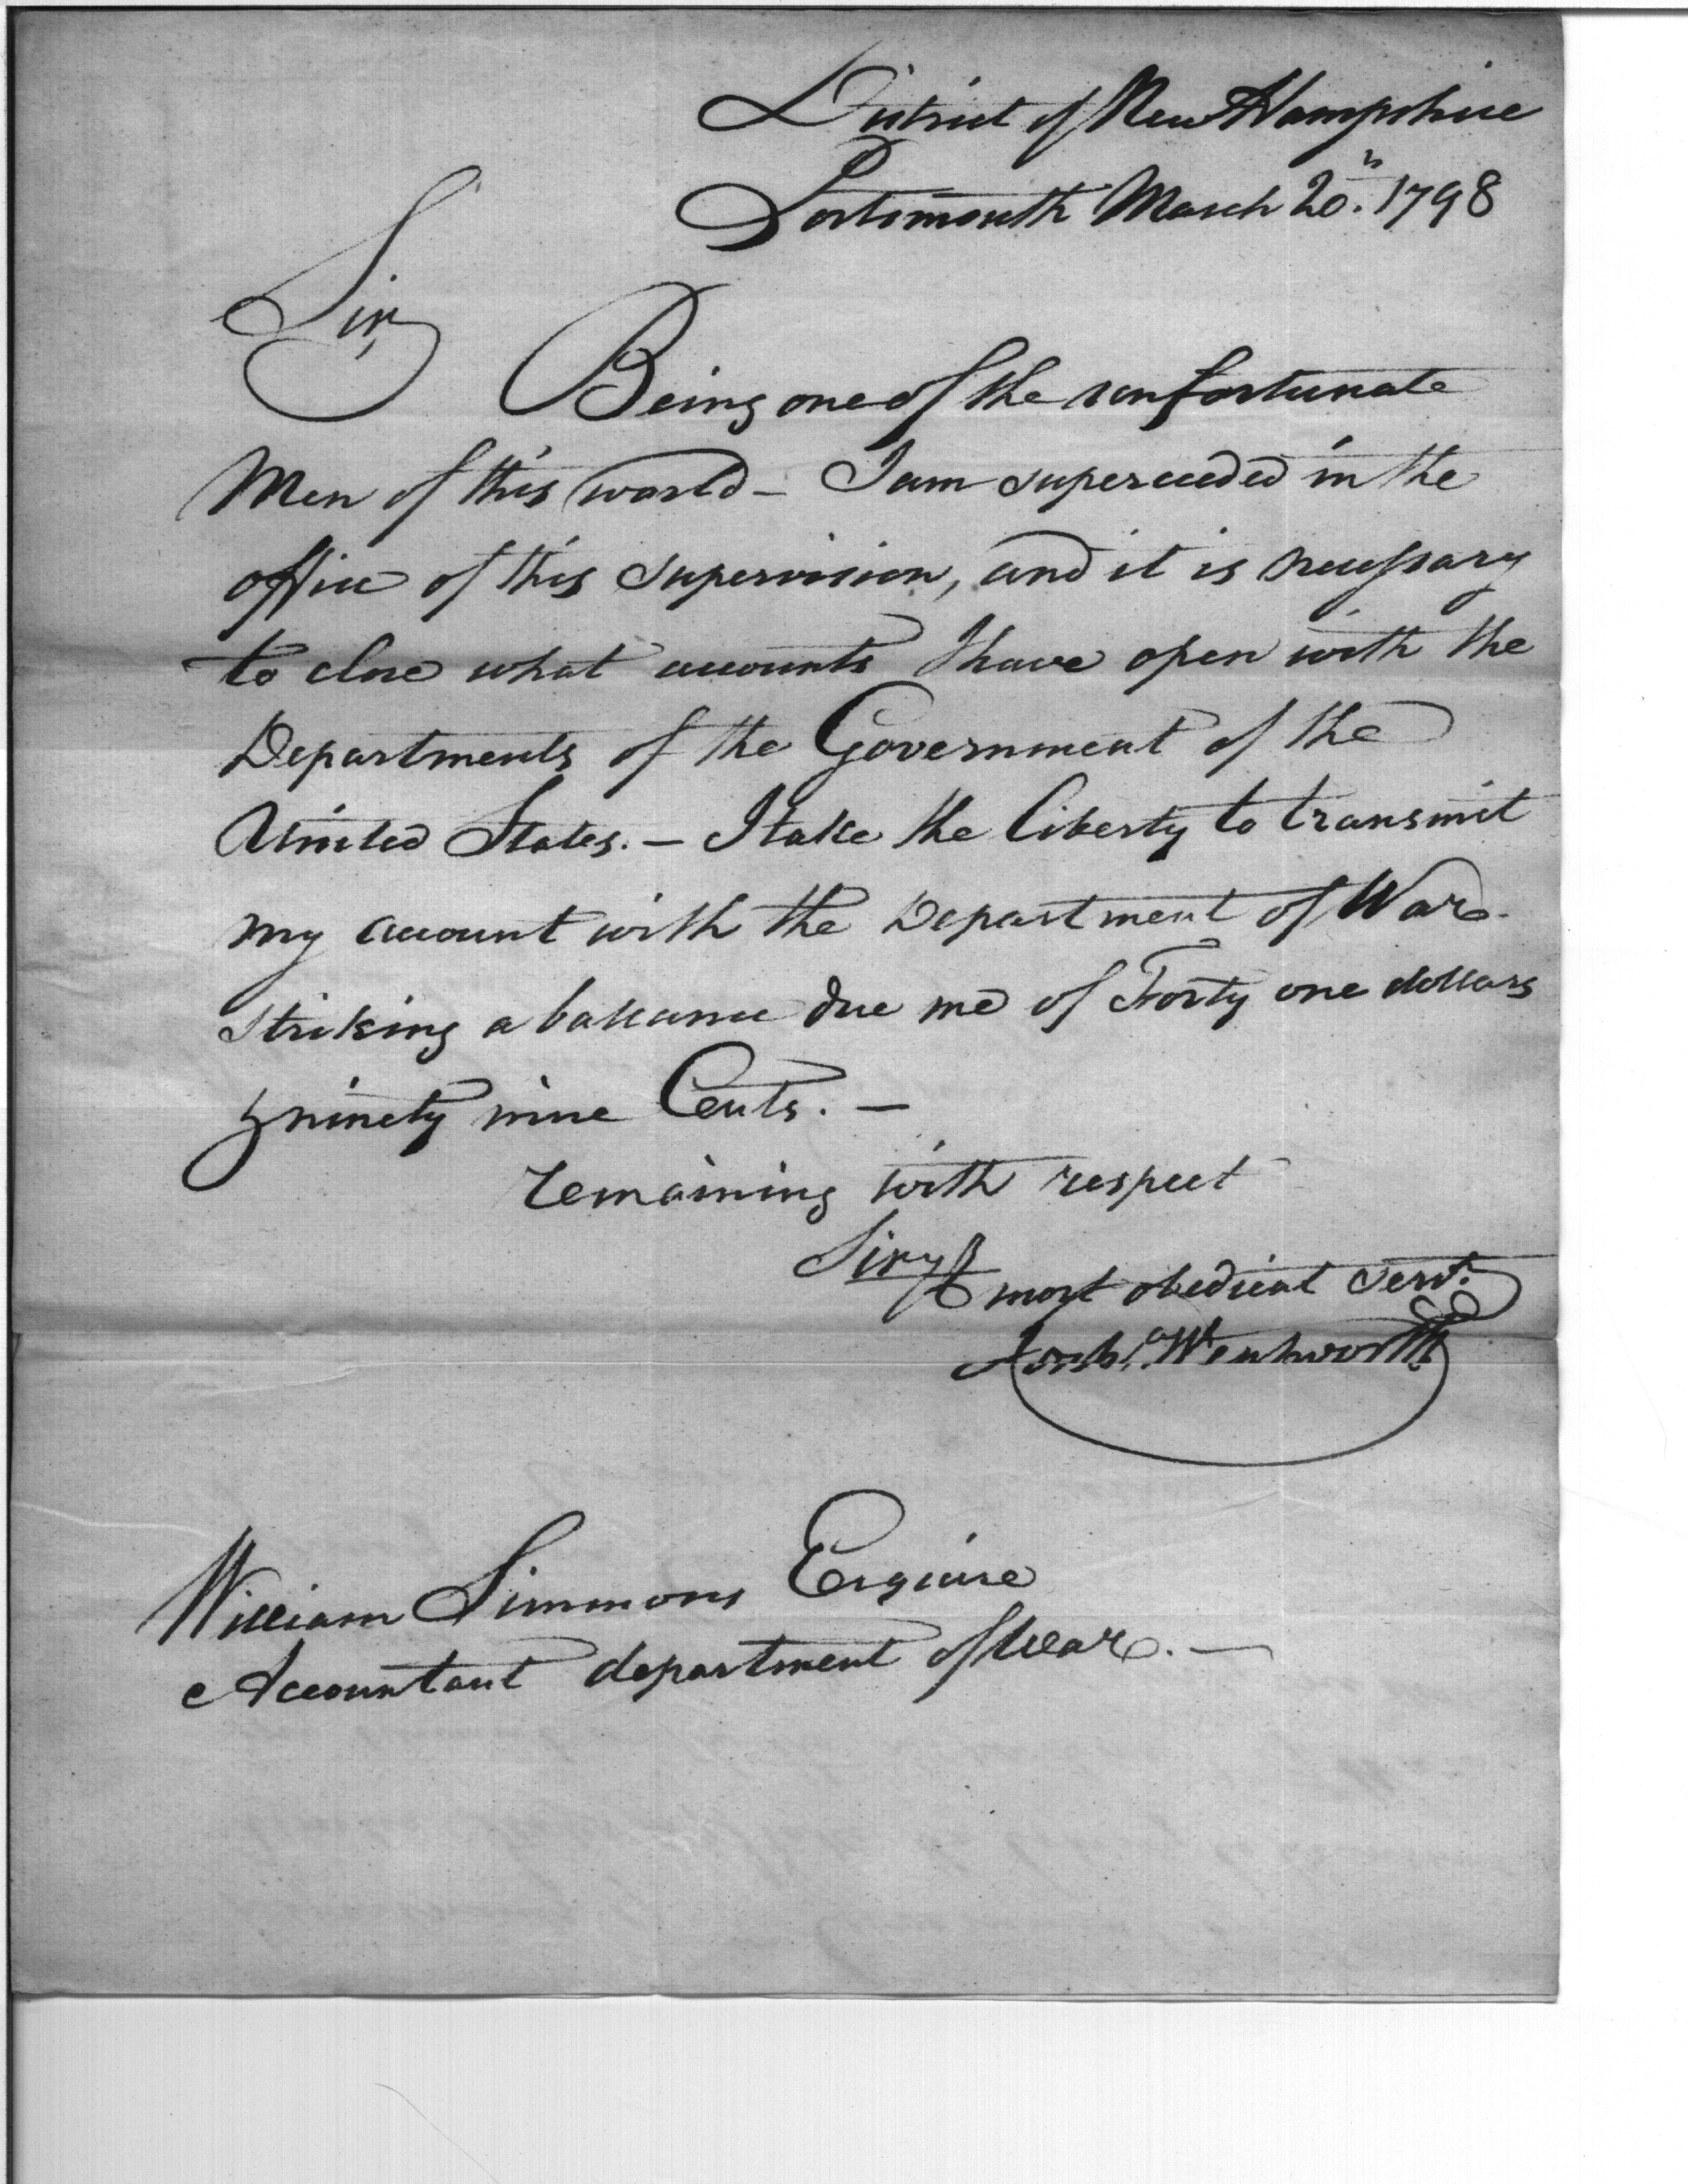 District of New Hampshire
Portsmouth March 20th. 1798
Sir,
Being one of the unfortunate
Men of this world - I am superceeded in the
office of this supervision, and it is necessary
to close what accounts I have open with the
Departments of the Government of the
United States. - I take the liberty to transmit
my account with the Department of War.
striking a ballance due me of Forty one dollars
& ninety nine Cents. -
remaining with respect
Sir, yr
most obedient servt.
Josha. Wentworth
William Simmons Esquire
Accountant department of War. -